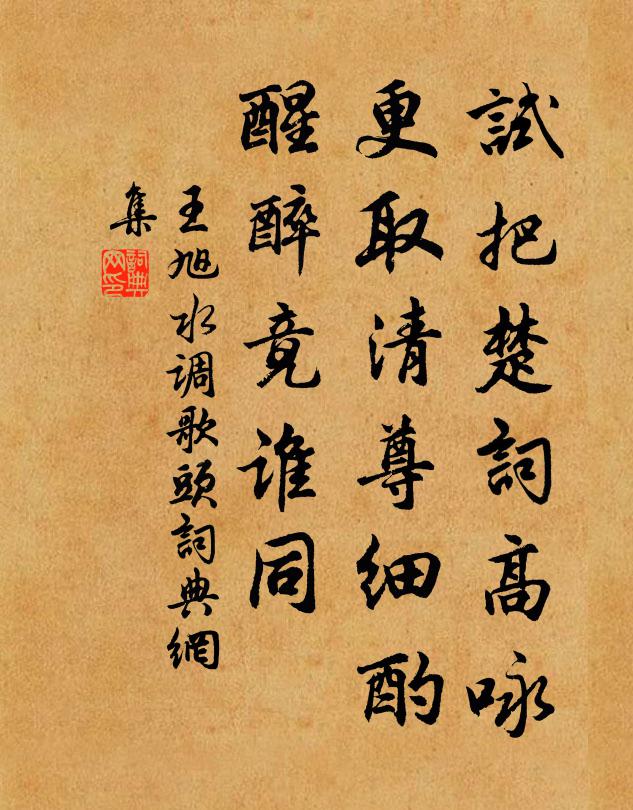 試把楚詞高咏
更取清尊細酌
醒醉竟誰同
王旭水调歌頭詞典網
集
詞典
网印